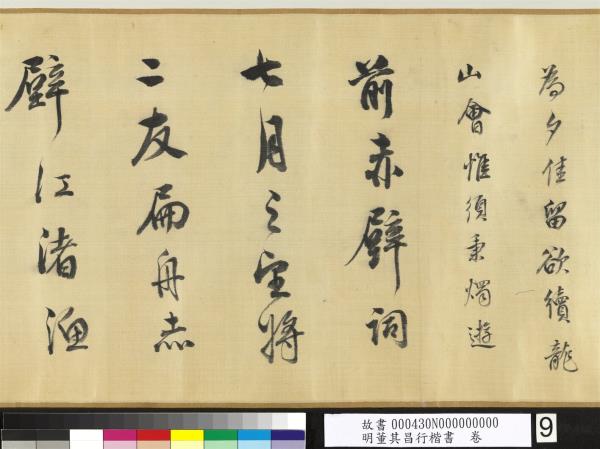 為夕佳留欲續龍
山會惟須秉燭遊
前赤壁詞
七月之望將
二友扁舟赤
壁江渚漁
故書 000430N000000000
明董其昌行楷書 卷
9